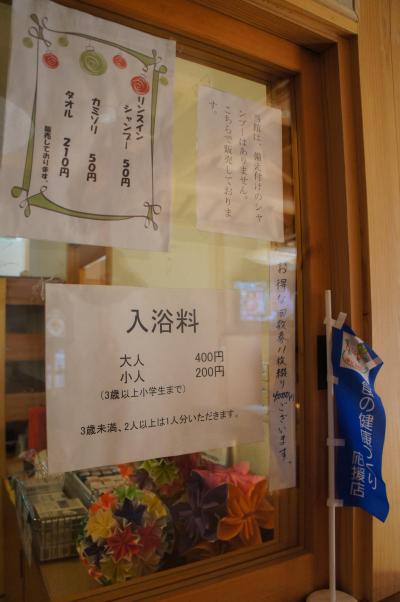 リンスイン
シャンプー 50円
カミソリ 50円
タオル 210円
販売しております。
当館は、備え付けのシャ
ンプーはありません。
こちらで販売しておりま
す。
入浴料
大人 400円
小人 200円
(3歳以上小学生まで)
3歳未満、2人以上は1人分いただきます。
お得な回数券11枚綴り4,000円ございます。
食の健康づくり
応援店